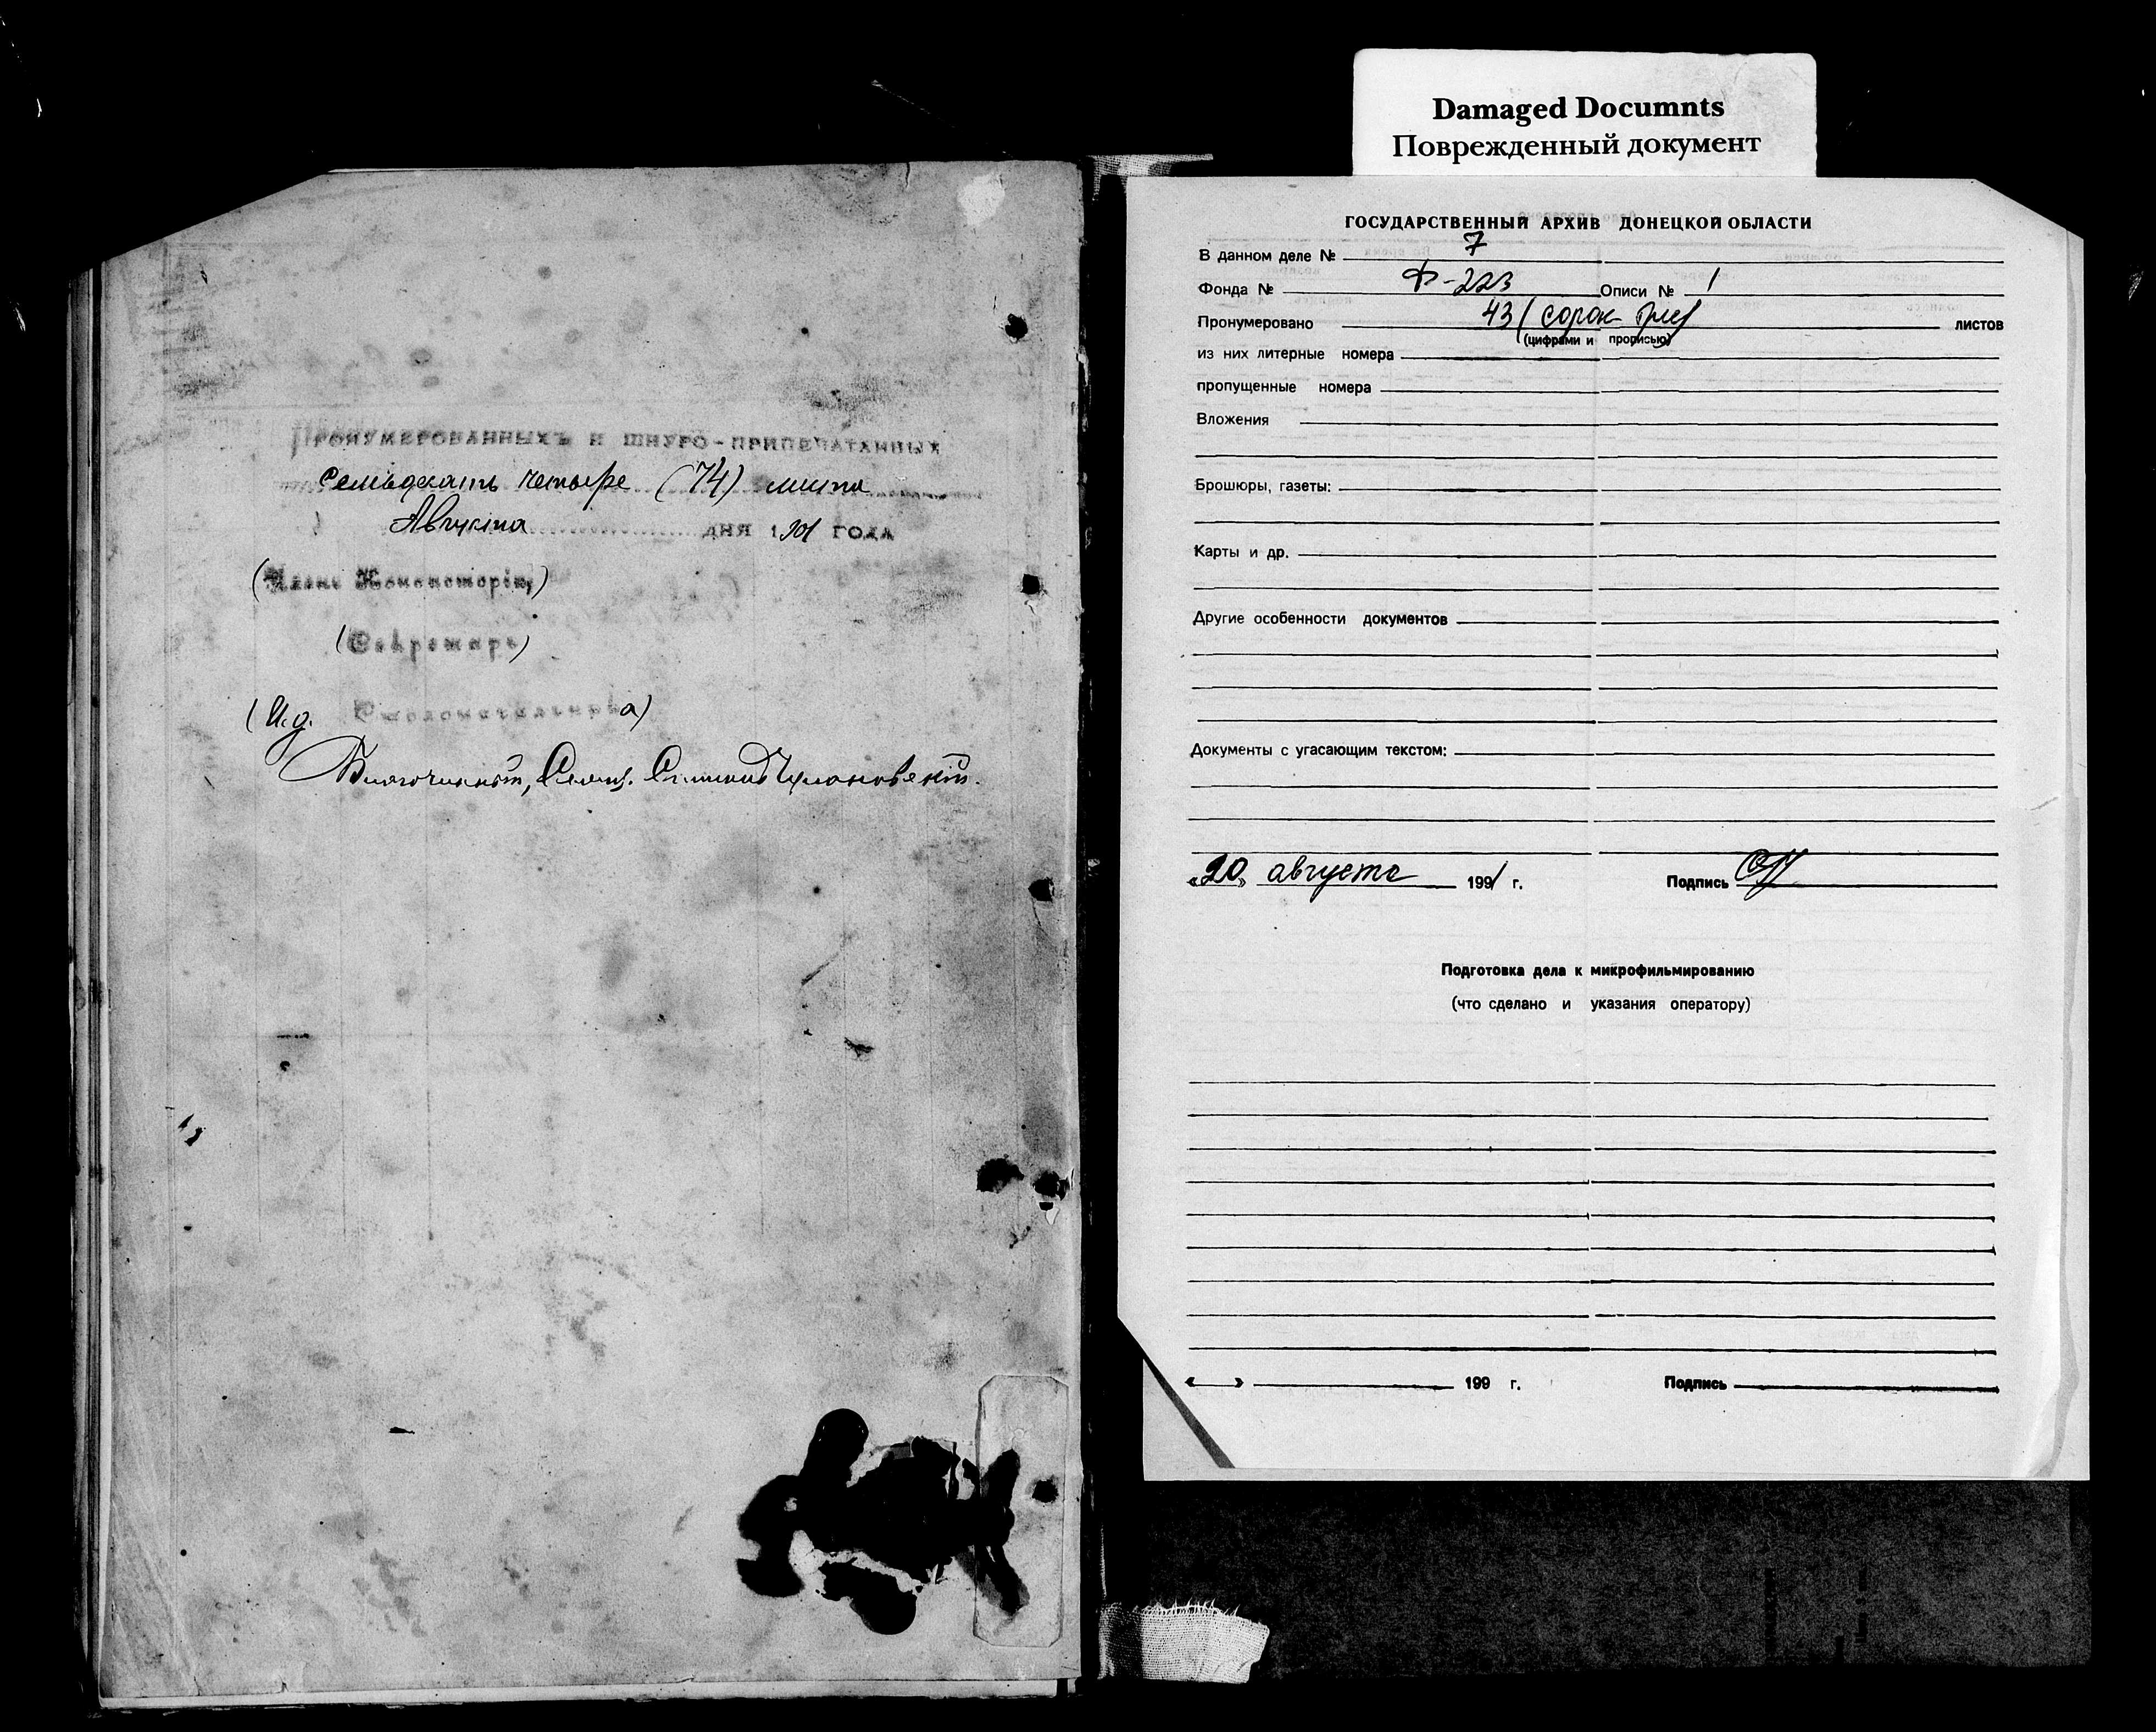 ПРОНУМЕРОВАННЫХЪ И ШНУРО-ПРИПЕЧАТАННЫХ
семьдесятъ четыре (74) листа
Августа ДНЯ 1901 ГОДА
(Членъ Консисторіи)
(Секретарь)
(И.д. Столоначальника)
Благочинный, Свящ. Симеонъ
Damaged Documnts
Поврежденный документ
ГОСУДАРСТВЕННЫЙ АРХИВ ДОНЕЦКОЙ ОБЛАСТИ
В данном деле № 7
Фонда № Ф-223 Описи № 1
Пронумеровано 43 (сорок три) листов
(цифрами и прописью)
из них литерные номера
пропущенные номера
Вложения
Брошюры, газеты:
Карты и др.
Другие особенности документов
Документы с угасающим текстом:
«20» августа 1991 г. Подпись
Подготовка дела к микрофильмированию
(что сделано и указания оператору)
« » 199 г. Подпись